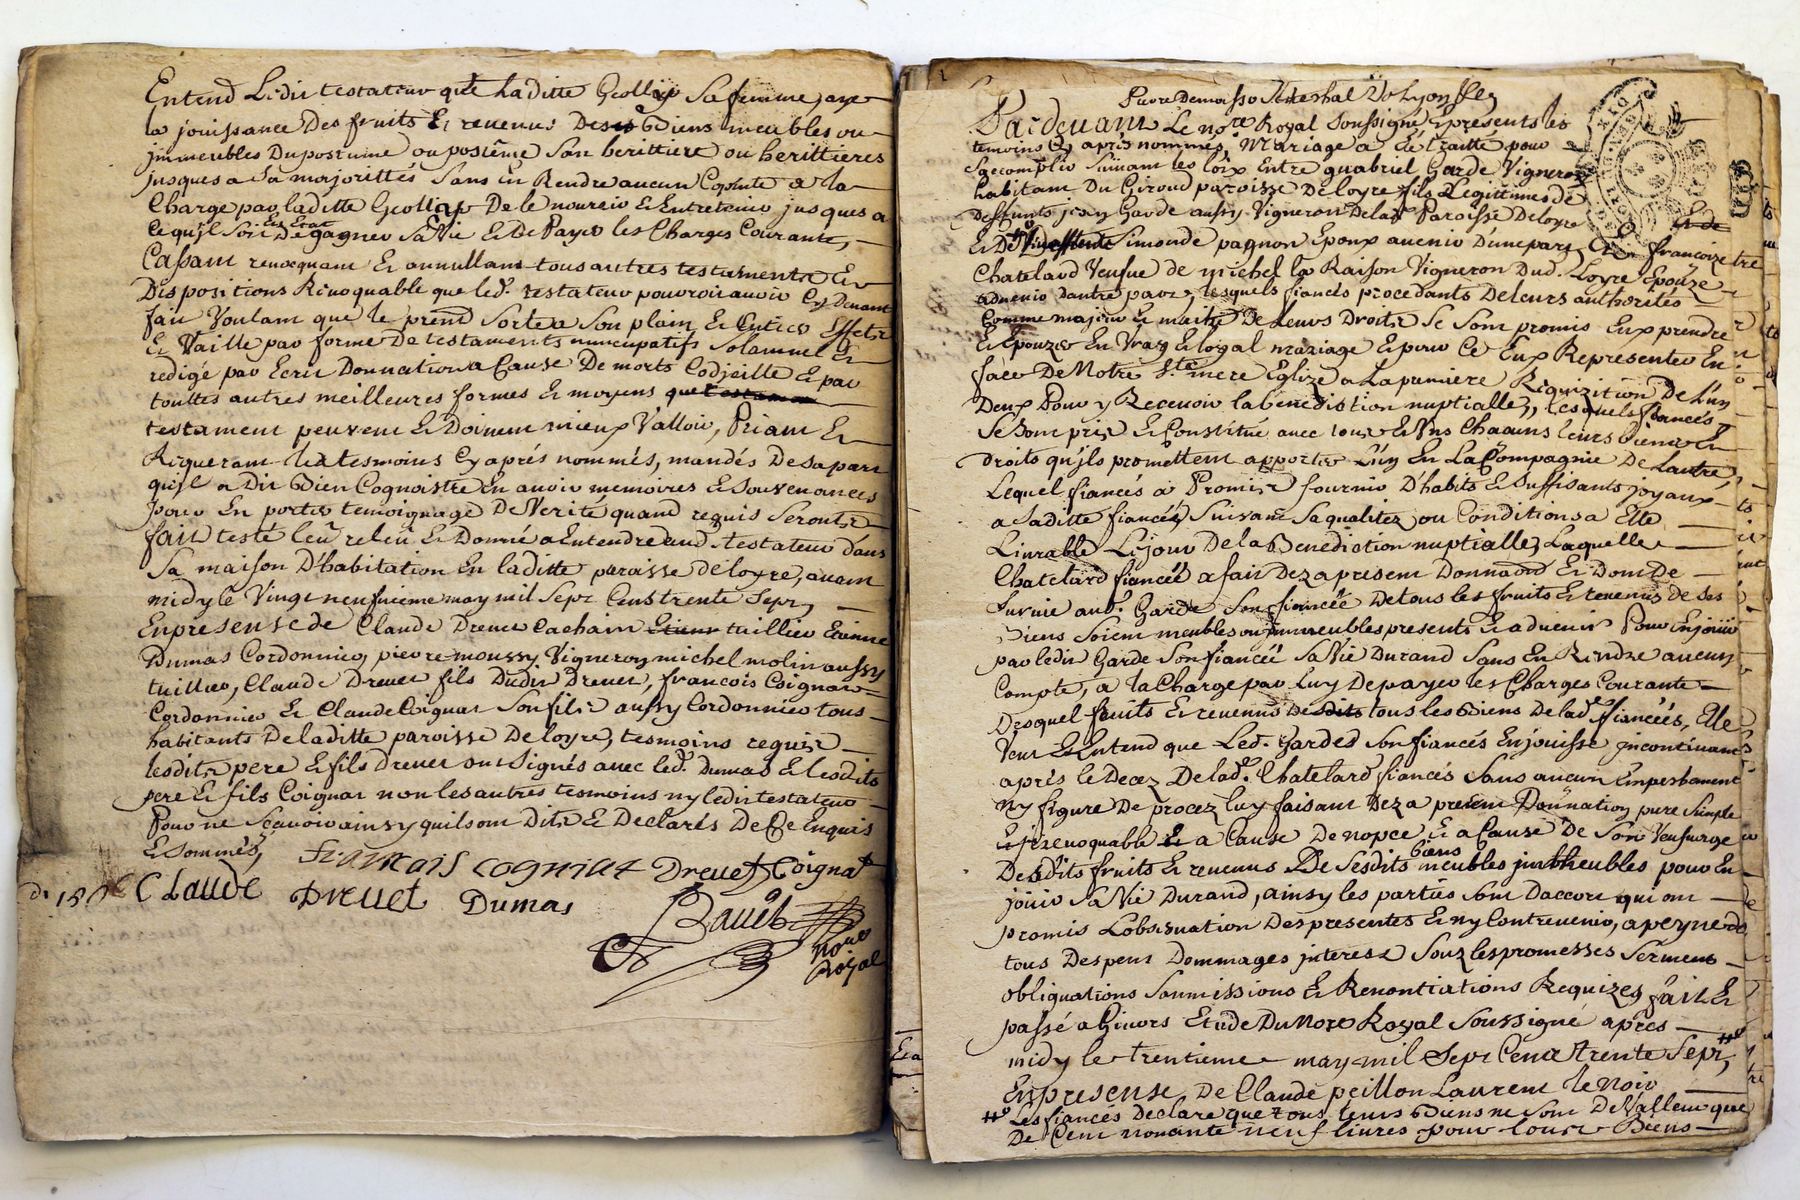 Entend Ledit testateur que Laditte Geollay Sa femme, aye
la jouissance Des fruits Et revenus Desd Biens meubles ou
immeubles Du postume ou postême Son herittiere ou herittieres
jusques a Sa majorittés Sans En Rendre aucun Compte a la
Charge par laditte Geollay De le nourrir Et Entretenir jusques a
Ce qu'jl Soit En Etat De gagner Sa Vie Et De Payer les Charges Courante,
Cassant revocquant Et annullant tous autres testaments Et
Dispositions Revoquable que led. testateur pouvroit avoir Cy Devant
fait Voulant que le present Sorte a Son plain Et Entier Effets
Et Vaille par forme De testaments nuncupatifs Solamnel Et
redigé par Ecrit Donnation a Cause De morts Codjeille Et par
touttes autres meilleures formes Et moyens que testamen
testament peuvent Et Doivent mieux Valloir, Priant Et
Requerant les tesmoins Cy aprés nommés, mandés De sa part
qu'jl a Dit Bien Cognoistre En avoir memoires Et Souvenances
pour En porter temoignage De Verité quand requis Seront
fait testé leu releu Et Donné a Entendre aud. testateur dans
Sa maison D'habitation En laditte paroisse de loyre, avant
midy le Vingt neufvieme may mil Sept Cens trente Sept,
En presense de Claude Drevet Cachain Etienn taillier Etienne
Dumas Cordonnier, pierre moussy Vigneron michel molin aussy
taillier, Claude Drevet fils Dudit Drevet, francois Coignat
Cordonnier Et Claude Coignat Son fils aussy Cordonnier tous
habitants De laditte paroisse De loyre, tesmoins requis
lesdits pere Et fils Drevet ont Signés avec led. Dumas Et lesdits
pere Et fils Coignat non les autres tesmoins ny ledit testateur
Pour ne Sçavoir ainsy qu'ils ont Dits Et Declarés De Ce Enquis
Et Sommés,
francais cogniat Drevet Coignat
Claude Drevet Dumas
not.re
Royal
Par devant Le no.re Royal Soussigné Et presents les
temoins Cy aprés nommés, Mariage a été traitté pour
S'accomplir Suivant les loix Entre guabriel Garde Vigneron
habitant Du Giroud paroisse De loyre fils Legittimes de
Deffunts jean Garde aussy Vigneron De lad. Paroisse De loyre
Et De Simonde pagnon Epoux avenir D'une part, Et francoize
Chatelard Veufve de michel la Raison Vigneron Dud. Loyre Epouze
advenir D'autre part, lesquels fiancés procedants De leurs authorités
Comme majeur Et maitre De leurs Droits Se Sont promis Eux prendre
Et Epouzer En Vray Et loyal mariage Et pour Ce Eux Representer En
face De Notre S.te mere Eglize a La premiere Requizition De L'un
Deux Pour y Recevoir la benediction nuptialle, lesquels fiancés
Se Sont pris Et Constitué avec tous Et Uns Chacuns leurs Biens Et
droits qu'jls promettent apporter L'un En La Compagnie De L'autre,
Lequel fiancés a Promis fournir D'habits Et Suffisants joyaux
a Saditte fiancée, Suivant Sa qualitez ou Conditions a Elle
Livrable Le jour De la Benediction nuptialle, Laquelle
Chatelard fiancée a fait Dez a present Donnaon Et Don De
Survie aud. Garde Son fiancée De tous les fruits Et revenus de Ses
Biens Soient meubles ou jmmeubles presents Et advenir Pour En jouir
par ledit Garde Son fiancée Sa Vie Durand Sans En Rendre aucun
Compte, a la Charge par Luy De payer les Charges Courante
Desquel fruits Et revenus De tous les Biens De lad. fiancées, Elle
Veut Et Entend que Led. Gardes Son fiancés En jouisse jncontinant
aprés le Decez De lad. Chatelard fiancés Sans aucun Empeschement
Ny figure De procez luy faisant Dez a present Donnation pure Simple
Et jrrevoquable Et a Cause De nopce Et a Cause De Son Veufvage
Desdits fruits Et revenus De Sesdits biens meubles jmmeubles pour En
jouir Sa Vie Durand, ainsy les parties Sont Daccort qui ont
promis Lobservation Des presentes Et ny Contrevenir, a peyne de
tous Despent Dommages jnterest Souz les promesses Serment
obliguations Soumissions Et Renontiations Requizes fait Et
passé a Givors Etude Du No.re Royal Soussigné aprés
midy le trentieme may mil Sept Cens trente Sept,
En presense De Claude peillon Laurent le Noir
Les fiancés Declare que tous leurs Biens ne Sont De Valleur que
De Cent nonante neuf livres pour tous Biens